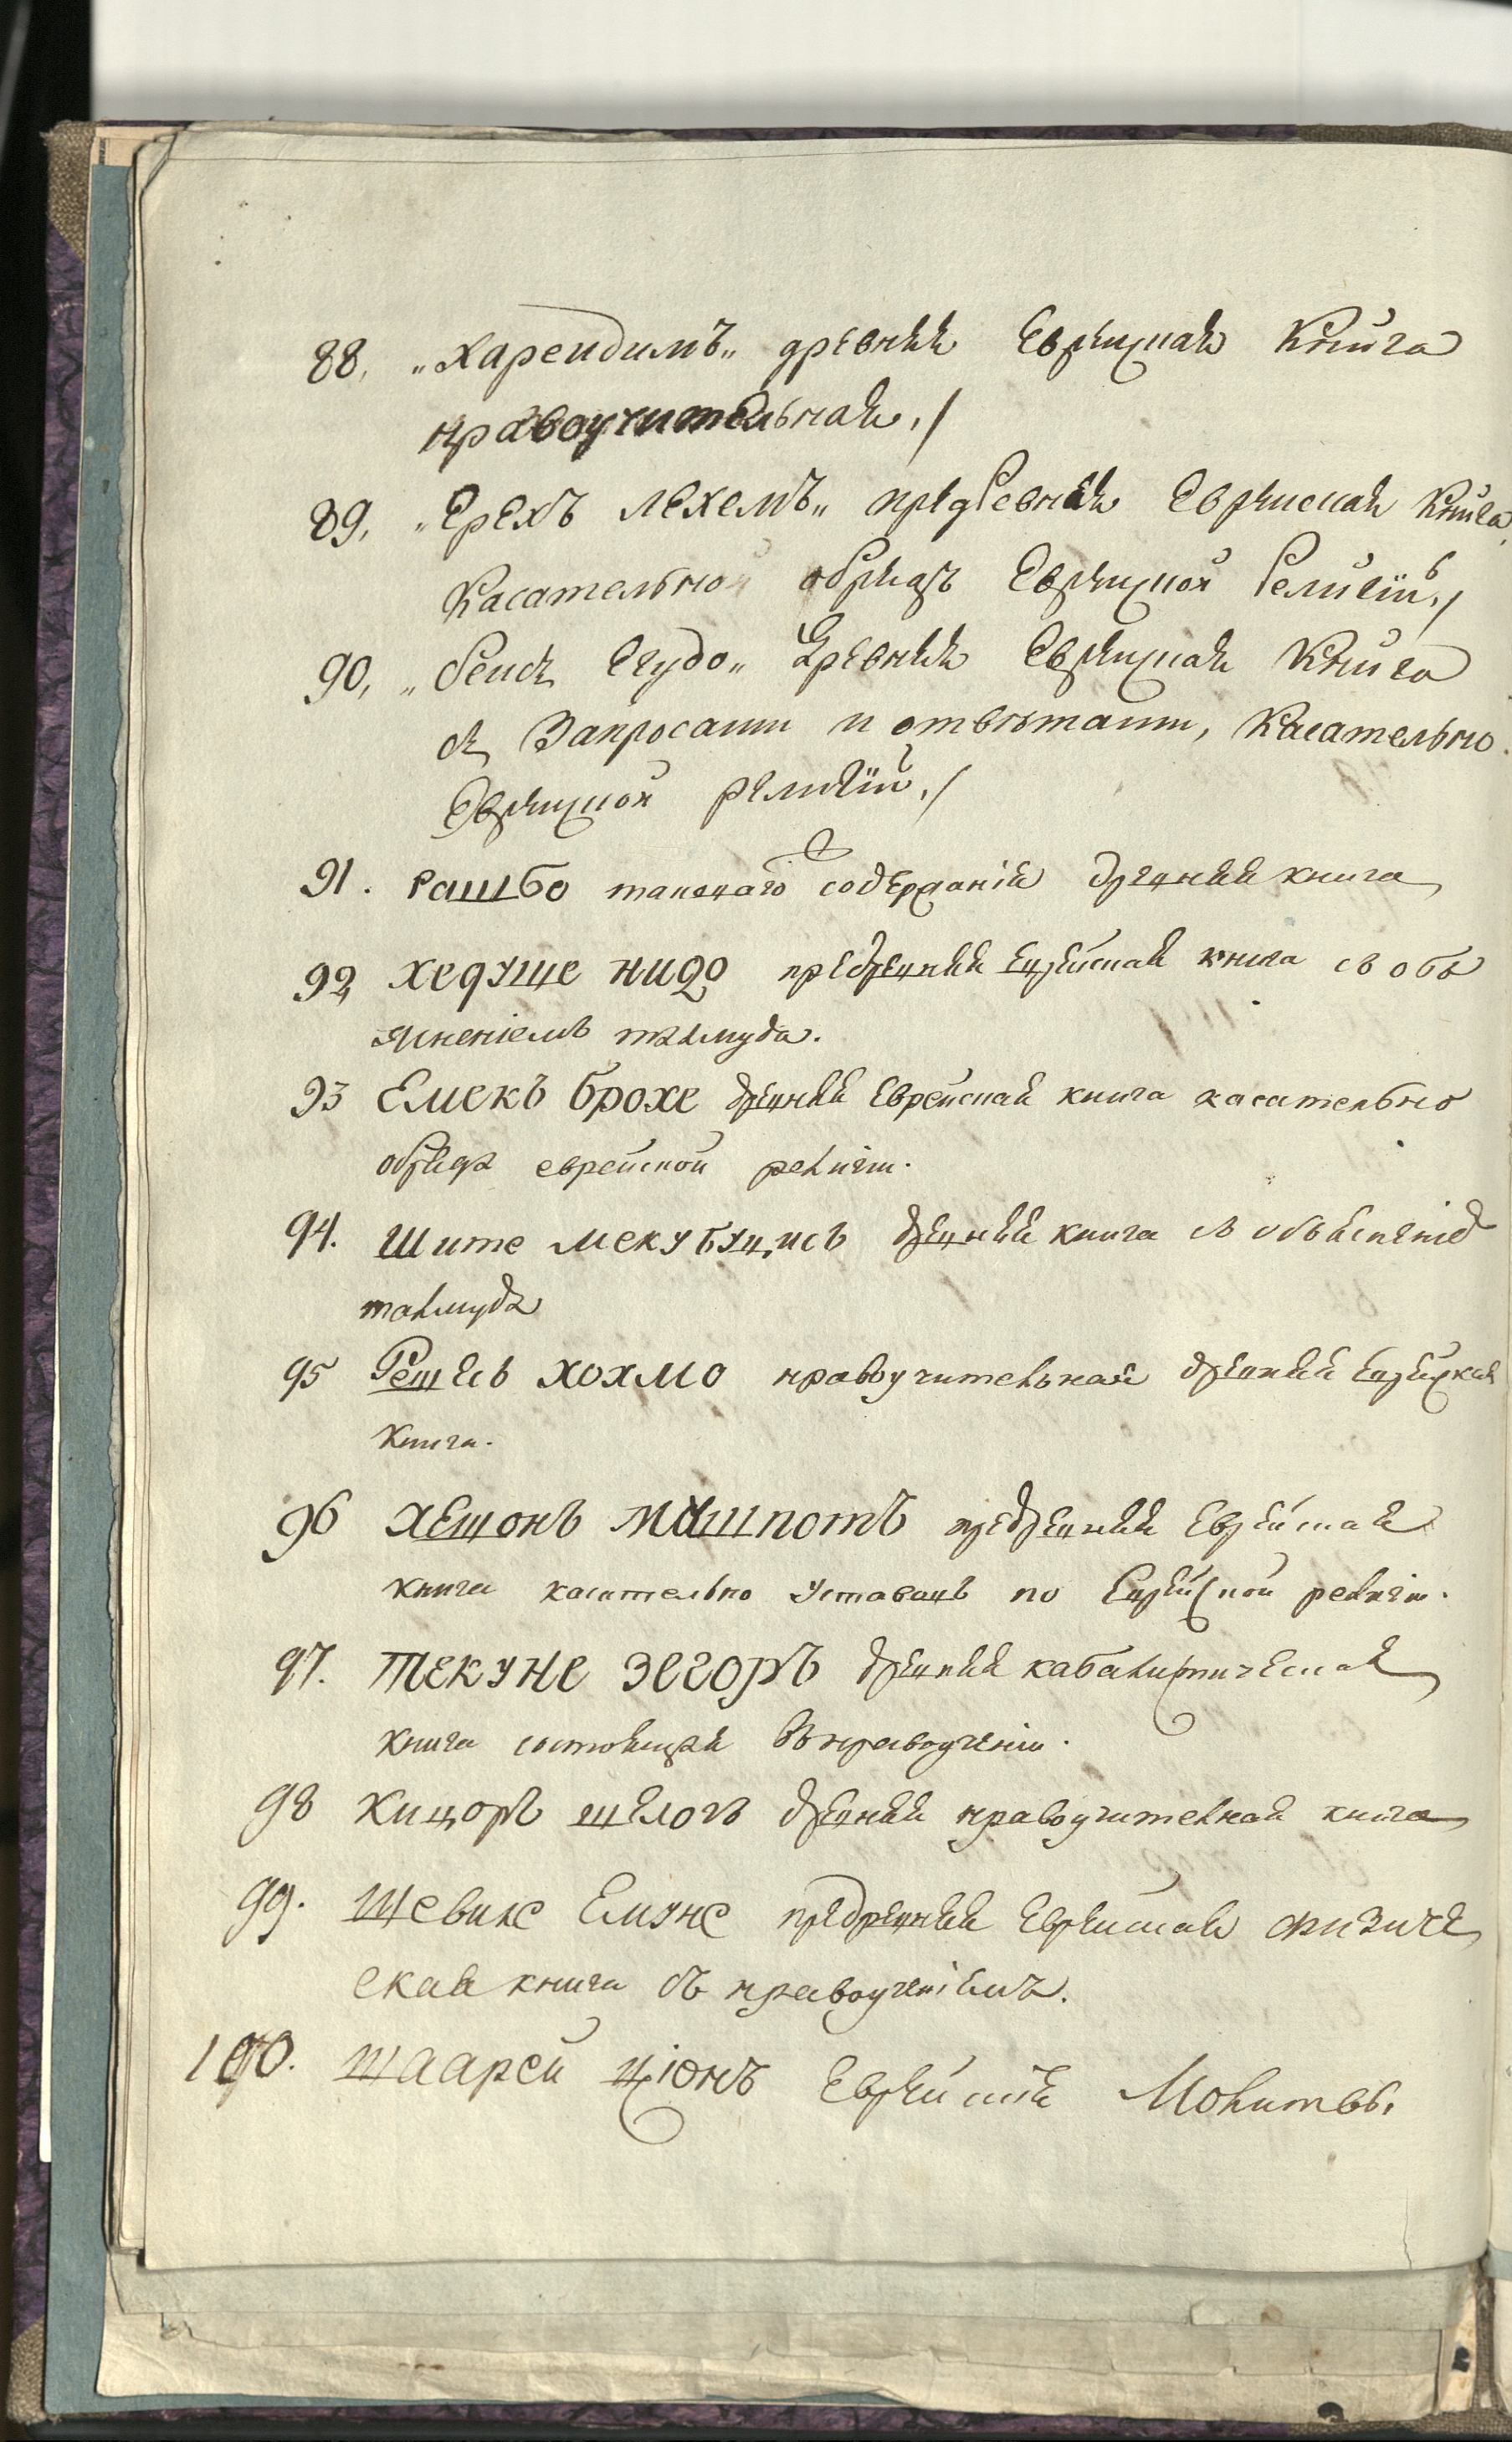 88, „Харейдимъ„ древняя Еврейская Книга
нравоучительная./
89, „Ерехъ Лехемъ„ предревняя Еврейская Книга,
Касательно обрядъ Еврейской Религiи./
90, „бейсъ Егудо„ Древняя Еврейская Книга
съ Запросами и отвѣтами, Касательно
Еврейской религiи./
91. Рашбо таковаго содержанiя древняя книга
92 Хедуще нидо предревняя еврейская книга съ объ
ясненiемъ талмуда.
93 Емекъ брохе древняя Еврейская книга касательно
обряда еврейской религiи.
94. Шите мекубуцись древняя книга съ объясненiе
талмуда
95 Решись хохмо нравоучительная древняя еврейская
книга.
96 Хешонъ мишпотъ предревняя Еврейская
книга касательно уставовъ по Еврейской религiи.
97. Текуне зегоръ древняя кабалистическая
книга состоящая въ нравоученiи.
98 Кицоръ шелогъ древняя нравоучителная книга
99. Шевиле Емуне предревняя Еврейская физиче
ская книга съ нравоученiемъ.
100. Шаарей Цiонъ Еврейскiя Молитвы.